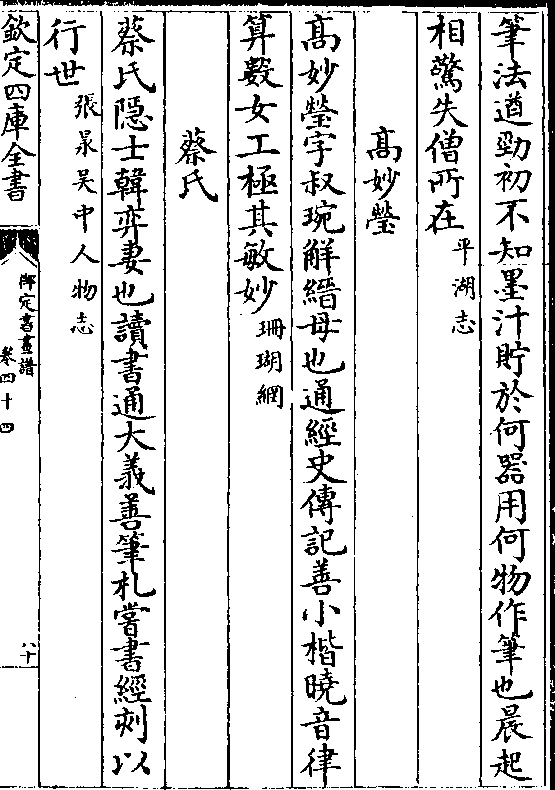 筆法遒勁初不知墨汁貯於何器用何物作筆也晨起
相驚失僧所在平湖志
高妙瑩
高妙瑩字叔琬解縉母也通經史傳記善小楷曉音律
算數女工極其敏妙珊瑚網
蔡氏
蔡氏隱士韓弈妻也讀書通大義善筆札嘗書經刻以
行世張泉吳中人物志
欽定四庫全書
御定書畫譜
卷四十四
八十